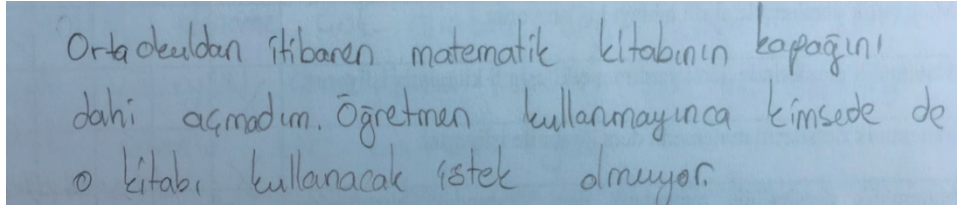 Ortaokuldan itibaren matematik kitabının kapağını
dahi açmadım. Öğretmen kullanmayınca kimsede de
o kitabı kullanacak istek olmuyor.